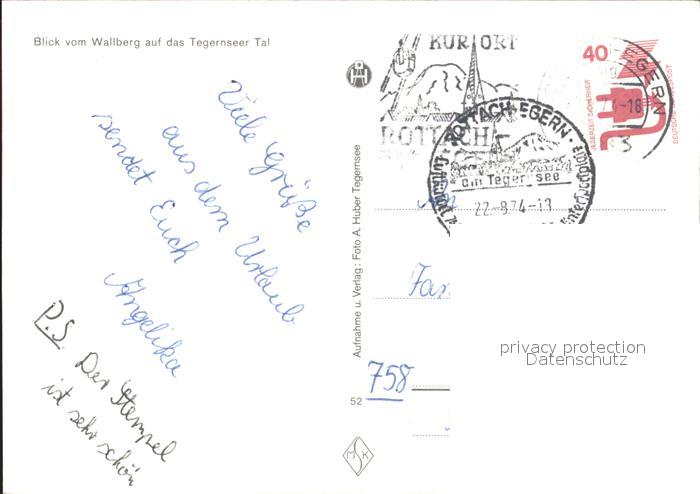 Blick vom Wallberg auf das Tegernseer Tal
Viele Grüße
aus dem Urlaub
sendet Euch
Angelika
P.S. Der Stempel
ist sehr schön
Aufnahme u. Verlag: Foto A. Huber Tegernsee
52
MSK
KURORT
ROTTACH
40
JEDERZEIT SICHERHEIT
DEUTSCHE BUNDESPOST
EGERN
ROTTACH-EGERN
am Tegernsee
22.-8.74-18
An
Fam
758
privacy protection
Datenschutz